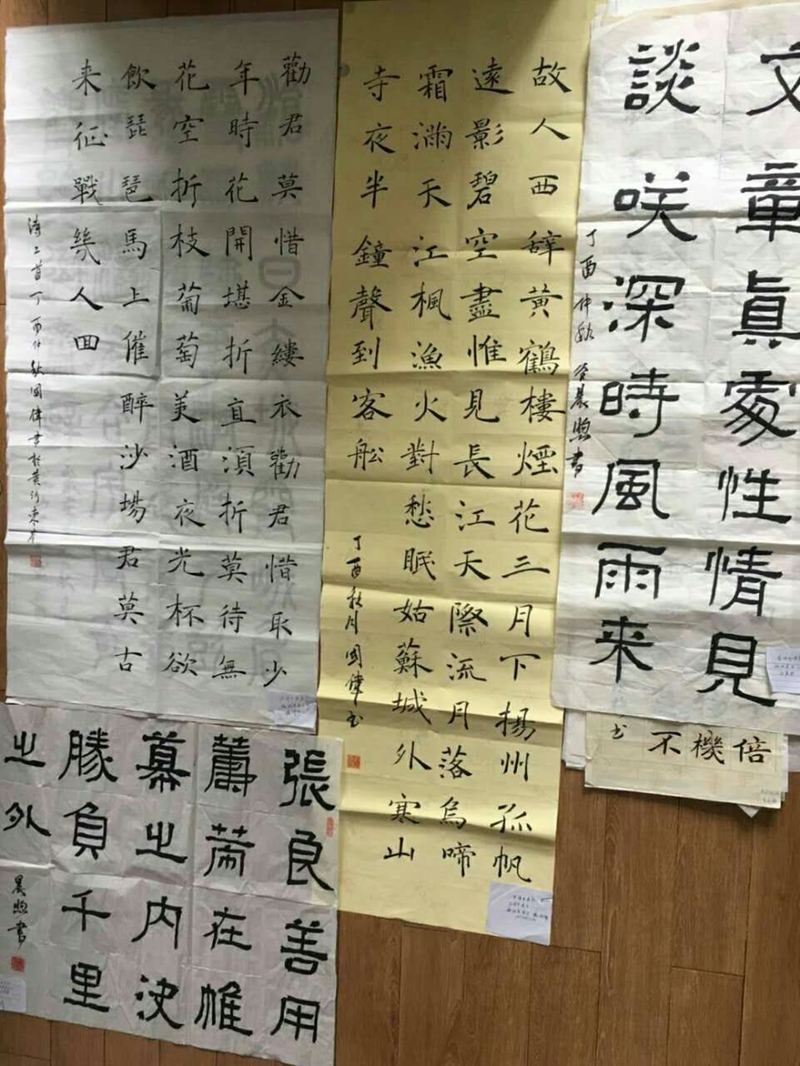 文章眞處性情見
談咲深時風雨来
丁酉仲秋 晨煦書
故人西辭黃鶴樓煙花三月下揚州孤帆
遠影碧空盡惟見長江天際流月落烏啼
霜滿天江楓漁火對愁眠姑蘇城外寒山
寺夜半鐘聲到客舩
丁酉秋月國偉书
勸君莫惜金縷衣勸君惜取少
年時花開堪折直須折莫待無
花空折枝葡萄美酒夜光杯欲
飲琵琶馬上催醉沙場君莫古
来征戰幾人回
二首丁酉仲秋國偉書於黄河東
倍機不
书
張良善用
蕭荷在帷
幕之内決
勝負千里
之外
晨煦書